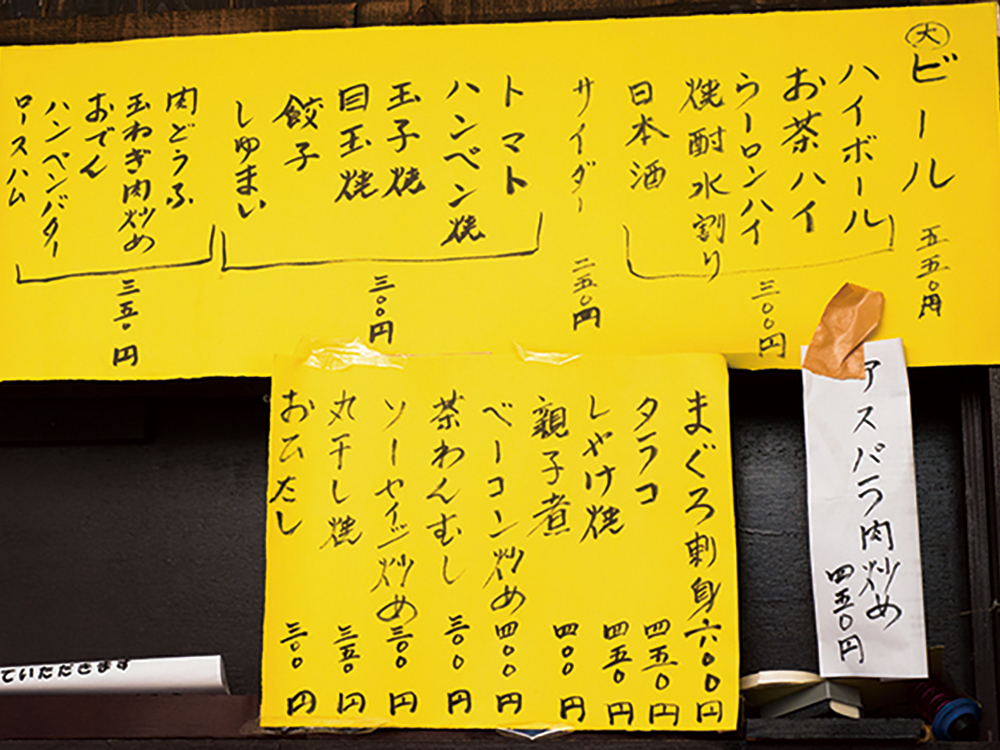 大
ビール 五五〇円
ハイボール
お茶ハイ
ウーロンハイ
焼酎水割り
日本酒
三〇〇円
サイダー 二五〇円
トマト
ハンペン焼
玉子焼
目玉焼
餃子
しゆまい
三〇〇円
肉どうふ
玉ねぎ肉炒め
おでん
ハンペンバター
ロースハム
三五〇円
まぐろ刺身 六〇〇円
タラコ 四五〇円
しやけ焼 四五〇円
親子煮 四〇〇円
ベーコン炒め 四〇〇円
茶わんむし 三〇〇円
ソーセイジ炒め 三〇〇円
丸干し焼 三五〇円
おひたし 三〇〇円
アスパラ肉炒め
四五〇円
ていただきます